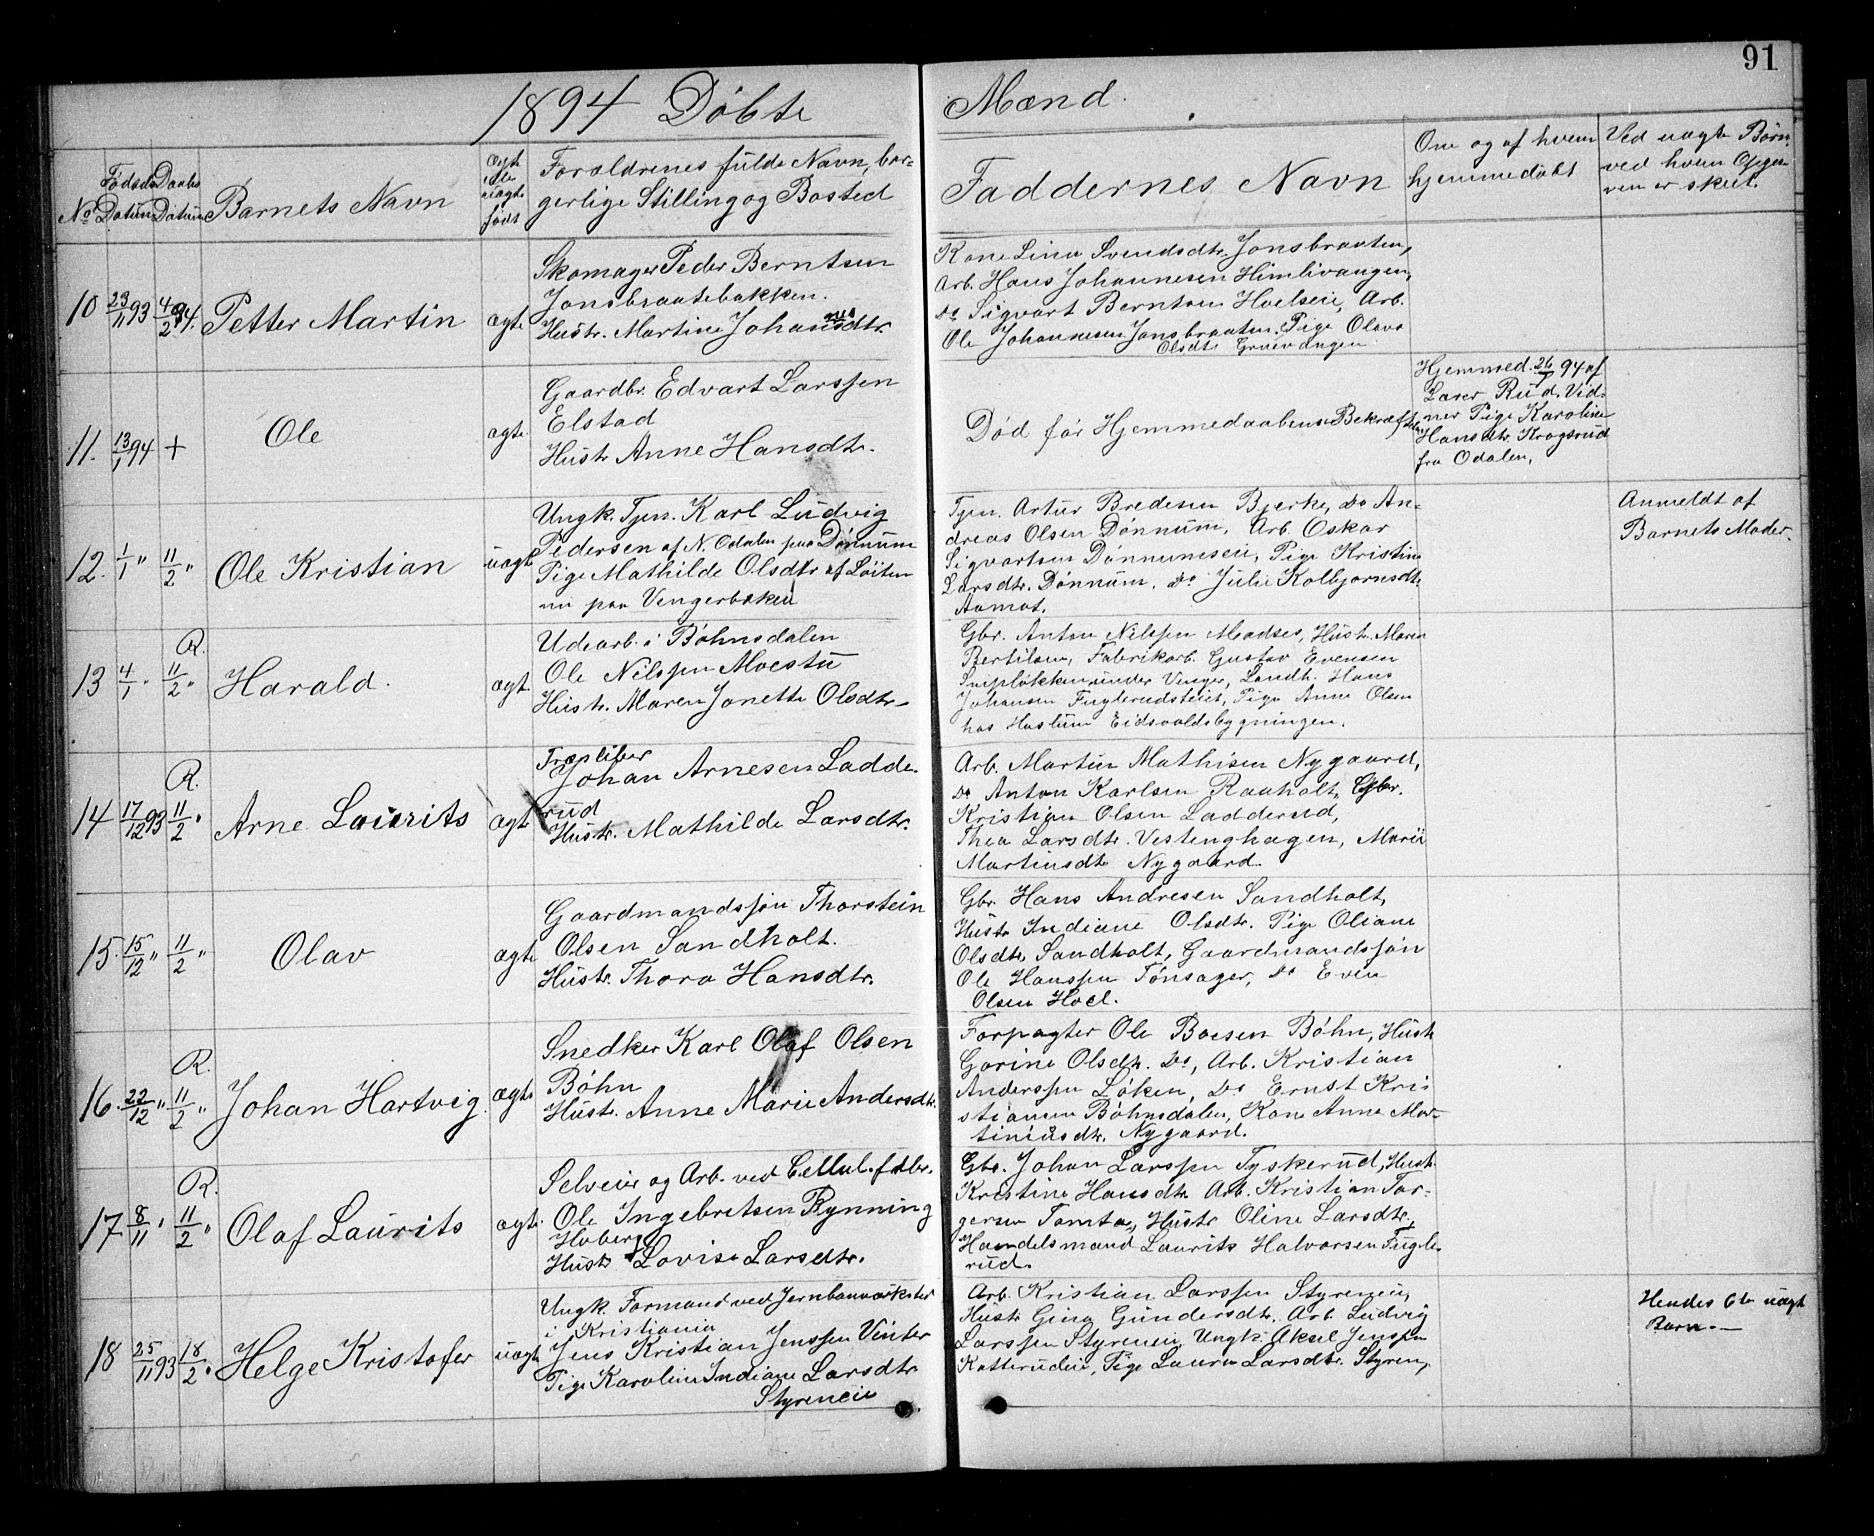 91
1894 Døbte Mænd.
No
Fødsels Datum
Daabs Datum
Barnets Navn
ægte eller uægte født
Forældrenes fulde Navn, bor-
gerlige Stilling og Bosted
Faddernes Navn
Om og af hvem
hjemmedøbt
Ved uægte Børn
ved hvem Opgav-
ven er skeet.
10 23/11 93 4/2 94. Petter Martin ægte
Skomager Peder Berntsen
Jonsbraatebakken.
Hustr. Martine Johansdtr.
Kone Lina Svendsdtr. Jonsbraaten,
Arb. Hans Johannesen Himlivangen,
Do Sigvart Berntsen Hoelseie, Arb.
Ole Johannesen Jonsbraaten. Pige Olava
Olsdtr Gruevangen
11. 13/1 94 + Ole ægte
Gaardbr. Edvart Larssen
Elstad
Hustr Anne Hansdtr.
Død før Hjemmedaabens Bekræftelse
Hjemmed. 26/1 94 af
Lærer Rud. Vid-
ner Pige Karoline
Hansdtr. Krogsrud
fra Odalen,
12. 1/1 " 11/2 " Ole Kristian uægte
Ungk. Tjen. Karl Ludvig
Pedersen af N. Odalen paa Dønnum
Pige Mathilde Olsdtr af Løiten
nu paa Vengerbakken
Tjen. Artur Bredesen Bjerke, Do An-
dreas Olsen Dønnum, Arb. Oskar
Sigvartsen Dønnumseie, Pige Kristine
Larsdtr. Dønnum, Do Julie Kolbjørnsdtr
Aamot.
Anmeldt af
Barnets Moder.
13 4/1 " R. 11/2 " Harald. ægte
Udearb. i Bøhnsdalen
Ole Nilssen Moestu
Hustr. Maren Jonette Olsdtr.
Gbr. Anton Nilssen Modses, Hustr. Maren
Bertilsen, Fabrikarb. Gustav Evensen
løkken under Venger, Landh. Hans
Johansen Fuglerudsteiet, Pige Anne Olsen
hos Haslum Eidsvoldsbygningen.
14 17/12 93 R. 11/2 " Arne Laurits ægte
Træsliber
Johan Arnesen Ladde-
rud
Hustr. Mathilde Larsdtr.
Arb. Martin Mathisen Nygaard,
Do Anton Karlsen Raaholt, Gbr.
Kristian Olsen Ladderud,
Thea Larsdtr. Vestenghagen, Marie
Martinsdtr Nygaard.
15. 15/12 " 11/2 " Olav ægte
Gaardmandssøn Thorstein
Olsen Sandholt.
Hustr. Thora Hansdtr.
Gbr. Hans Andresen Sandholt,
Hustr Indiane Olsdtr. Pige Oliane
Olsdtr Sandholt, Gaardmandssøn
Ole Hanssen Tønsager, Do Even
Olsen Hoel.
16. 22/12 " R. 11/2 " Johan Hartvig. ægte
Snedker Karl Olaf Olsen
Bøhn
Hustr. Anne Marie Andersdtr.
Forpagter Ole Boesen Bøhn, Hustr
Gorine Olsdtr. Do, Arb. Kristian
Anderssen Løken, Do Ernst Kris
stiansen Bøhnsdalen, Kone Anne Mar-
tiniusdtr. Nygaard.
17. 8/11 " R. 11/2 " Olaf Laurits ægte
Selveier og Arb. ved Cellul. fabr.
Ole Ingebretsen Rynning
Hoberg
Hustr Lovise Larsdtr.
Gbr. Johan Larssen Tyskerud, Hustr.
Kristine Hansdtr Arb. Kristian Tor-
gersen Tomta, Hustr Oline Larsdtr,
Handelsmand Laurits Halvorsen Fugle-
rud.
18 25/11 93 18/2 " Helge Kristofer uægte
Ungk. Formand ved Jernbaneværkster
i Kristiania
Jens Kristian Jenssen Vinter
Pige Karoline Indiane Larsdtr
Styreneie
Arb. Kristian Larssen Styreneie,
Hustr Gina Gundersdtr. Arb. Ludvig
Larssen Styreneie, Ungk. Aksel Jenssen
Katterudeie, Pige Laura Larsdtr. Styren,
Hendes 6te uægt
Barn.—